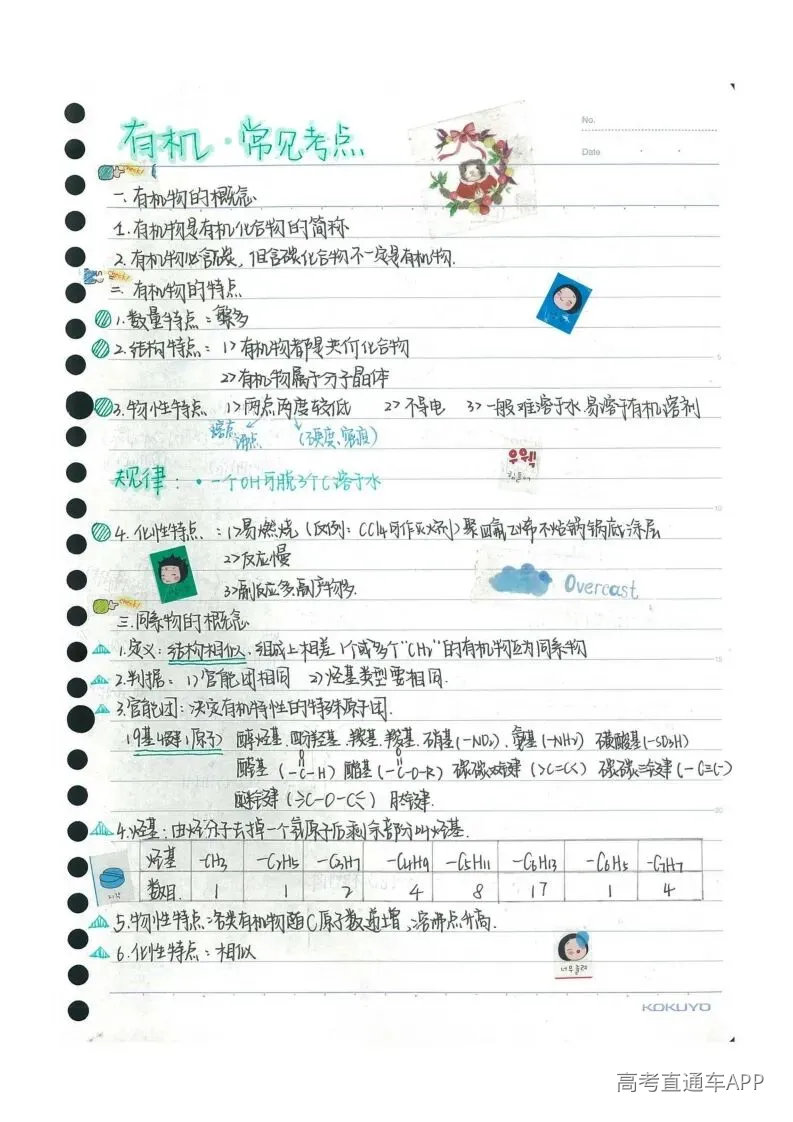 有机·常见考点
No.
Date
一.有机物的概念
1.有机物是有机化合物的简称
2.有机物必含碳,但含碳化合物不一定是有机物.
二.有机物的特点
1.数量特点:繁多
2.结构特点:1>有机物都是共价化合物
2>有机物属于分子晶体
3.物性特点 1>两点两度较低 2>不导电 3>一般难溶于水 易溶于有机溶剂
熔点、沸点 (硬度、强度)
规律:·一个OH可脱3个C溶于水
4.化性特点:1>易燃烧(反例:CCl4可作灭火剂)聚四氟乙烯不粘锅锅底涂层
2>反应慢
3>副反应多,副产物多.
Overcast
三.同系物的概念
1.定义:结构相似、组成上相差1个或多个"CH2"的有机物互为同系物
2.判据:1)官能团相同 2)烃基类型要相同.
3.官能团:决定有机特性的特殊原子团.
醇羟基、酚羟基、羧基、羰基、硝基(-NO2)、氨基(-NH2) 磺酸基(-SO3H)
醛基(-C-H) 酯基(-C-O-R) 碳碳双键(>C=C<) 碳碳三键(-C≡C-)
醚键(≥C-O-C≤) 肽键.
4.烃基:由烃分子去掉一个氢原子后剩余部分叫烃基.
烃基 -CH3 -C2H5 -C3H7 -C4H9 -C5H11 -C6H13 -C6H5 -C7H7
数目. 1 1 2 4 8 17 1 4
5.物性特点:各类有机物随C原子数递增,溶沸点升高.
6.化性特点:相似
KOKUYO
高考直通车APP